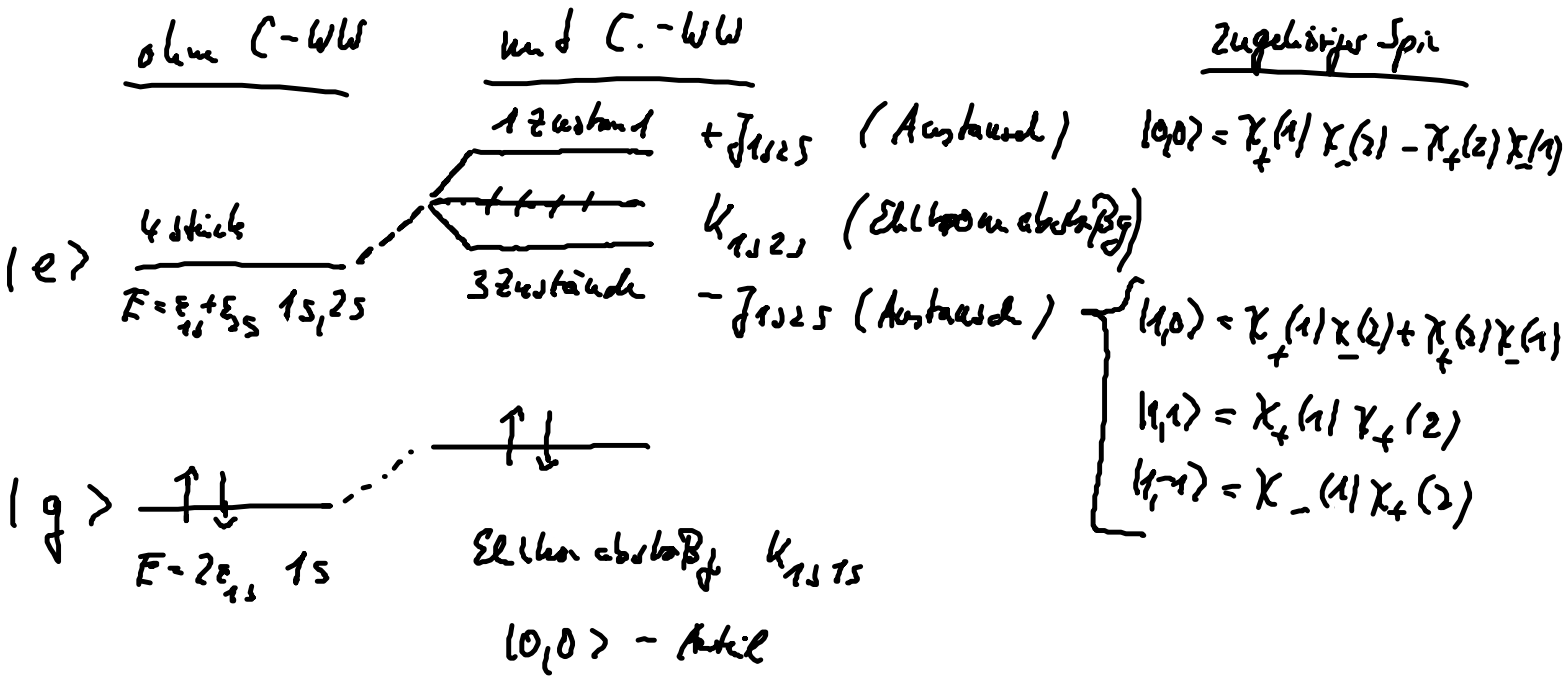 ohne C-WW
mit C.-WW
Zugehöriger Spin
1 Zustand
+ J₁ₛ₂ₛ (Austausch)
|0,0⟩ = χ₊(1) χ₋(2) - χ₊(2) χ₋(1)
4 Stück
K₁ₛ₂ₛ (Elektronenabstoßg)
|e⟩
E = ε₁ₛ + ε₂ₛ 1s, 2s
3 Zustände
- J₁ₛ₂ₛ (Austausch)
|1,0⟩ = χ₊(1) χ₋(2) + χ₊(2) χ₋(1)
|1,1⟩ = χ₊(1) χ₊(2)
|1,-1⟩ = χ₋(1) χ₊(2)
|g⟩
E = 2ε₁ₛ 1s
Elektronabstoßg K₁ₛ₁ₛ
|0,0⟩ - Anteil